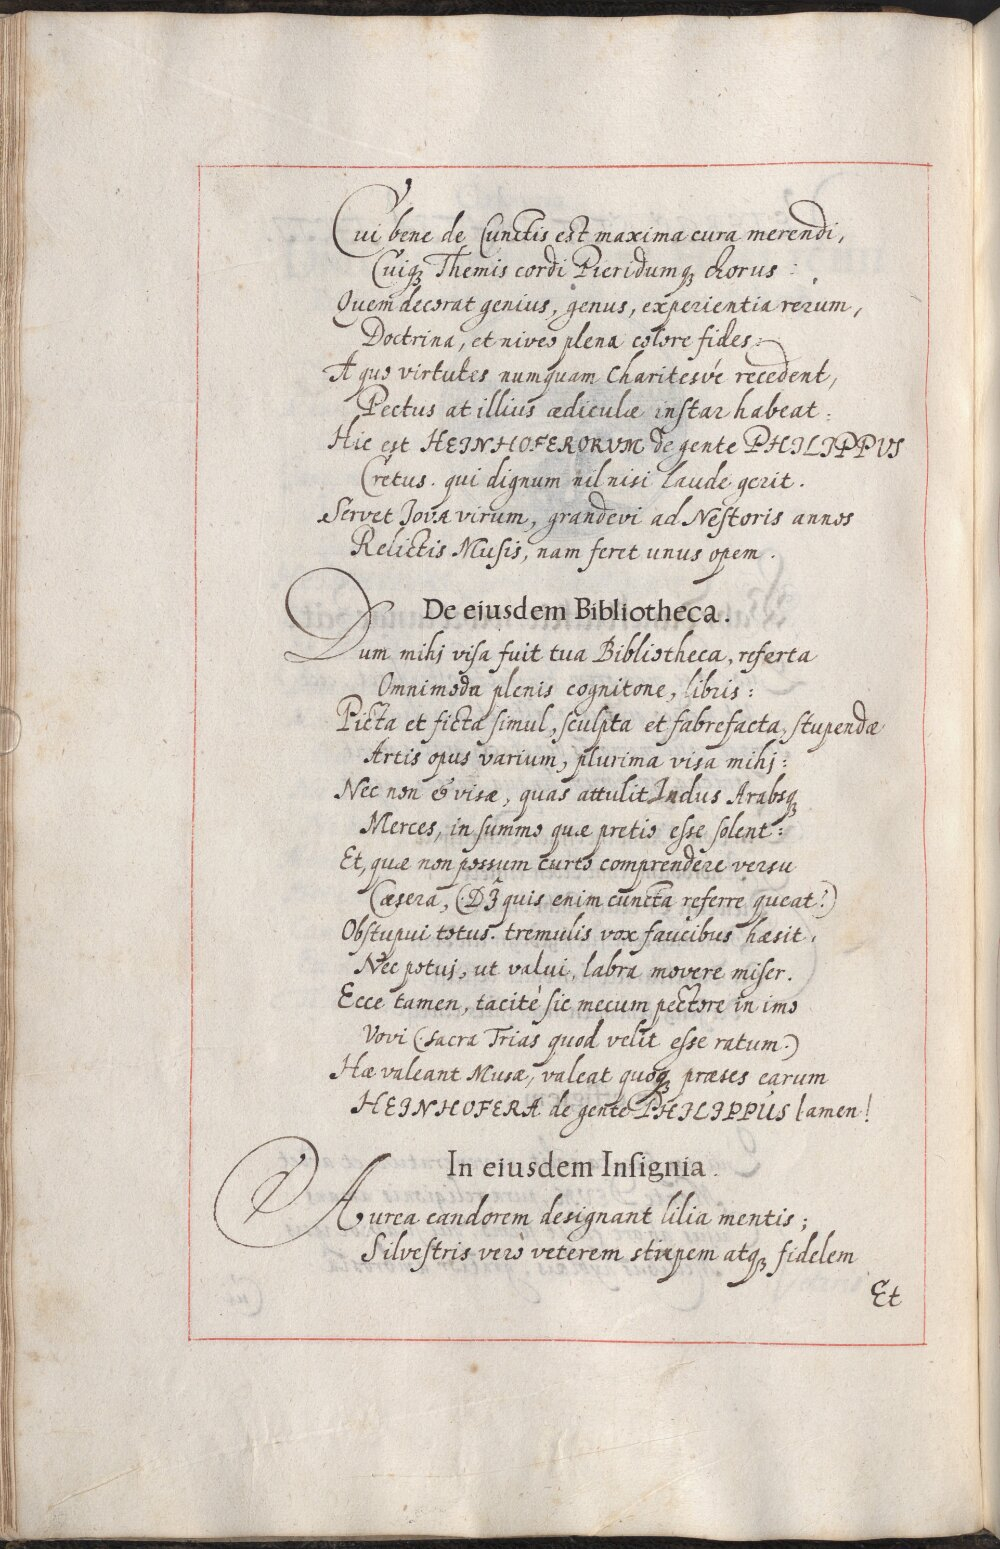 Cui bene de Cunctis est maxima cura merendi,
Cuiqꝫ Themis cordi Pieridumqꝫ chorus:
Quem decorat genius, genus, experientia rerum,
Doctrina, et niveo plena colore fides:
A quo virtutes numquam Charitesvé recedent,
Pectus at illius ædiculæ instar habeat:
Hic est HEINHOFERORVM de gente PHILIPPVS
Cretus. qui dignum nil nisi laude gerit.
Servet Jova virum, grandevi ad Nestoris annos
Relictis Musis, nam feret unus opem.
De eiusdem Bibliotheca.
Dum mihj visa fuit tua Bibliotheca, referta
Omnimoda plenis cognitone, libris:
Picta et ficta simul, sculpta et fabrefacta, stupendæ
Artis opus varium, plurima visa mihj:
Nec non & visæ, quas attulit Indus Arabsqꝫ
Merces, in summo quæ pretio esse solent:
Et, quæ non possum curto comprendere versu
Cæsera, (quis enim cuncta referre queat?)
Obstupui totus. tremulis vox faucibus hæsit,
Nec potuj, ut valui, labra movere miser.
Ecce tamen, tacité sic mecum pectore in imo
Vovi (sacra Trias quod velit esse ratum.)
Hæ valeant Musæ, valeat quoqꝫ præses earum
HEINHOFERA de gente PHILIPPUS lamen!
In eiusdem Insignia.
Aurea candorem designant lilia mentis;
Silvestris verò veterem stirpem atqꝫ fidelem
Et